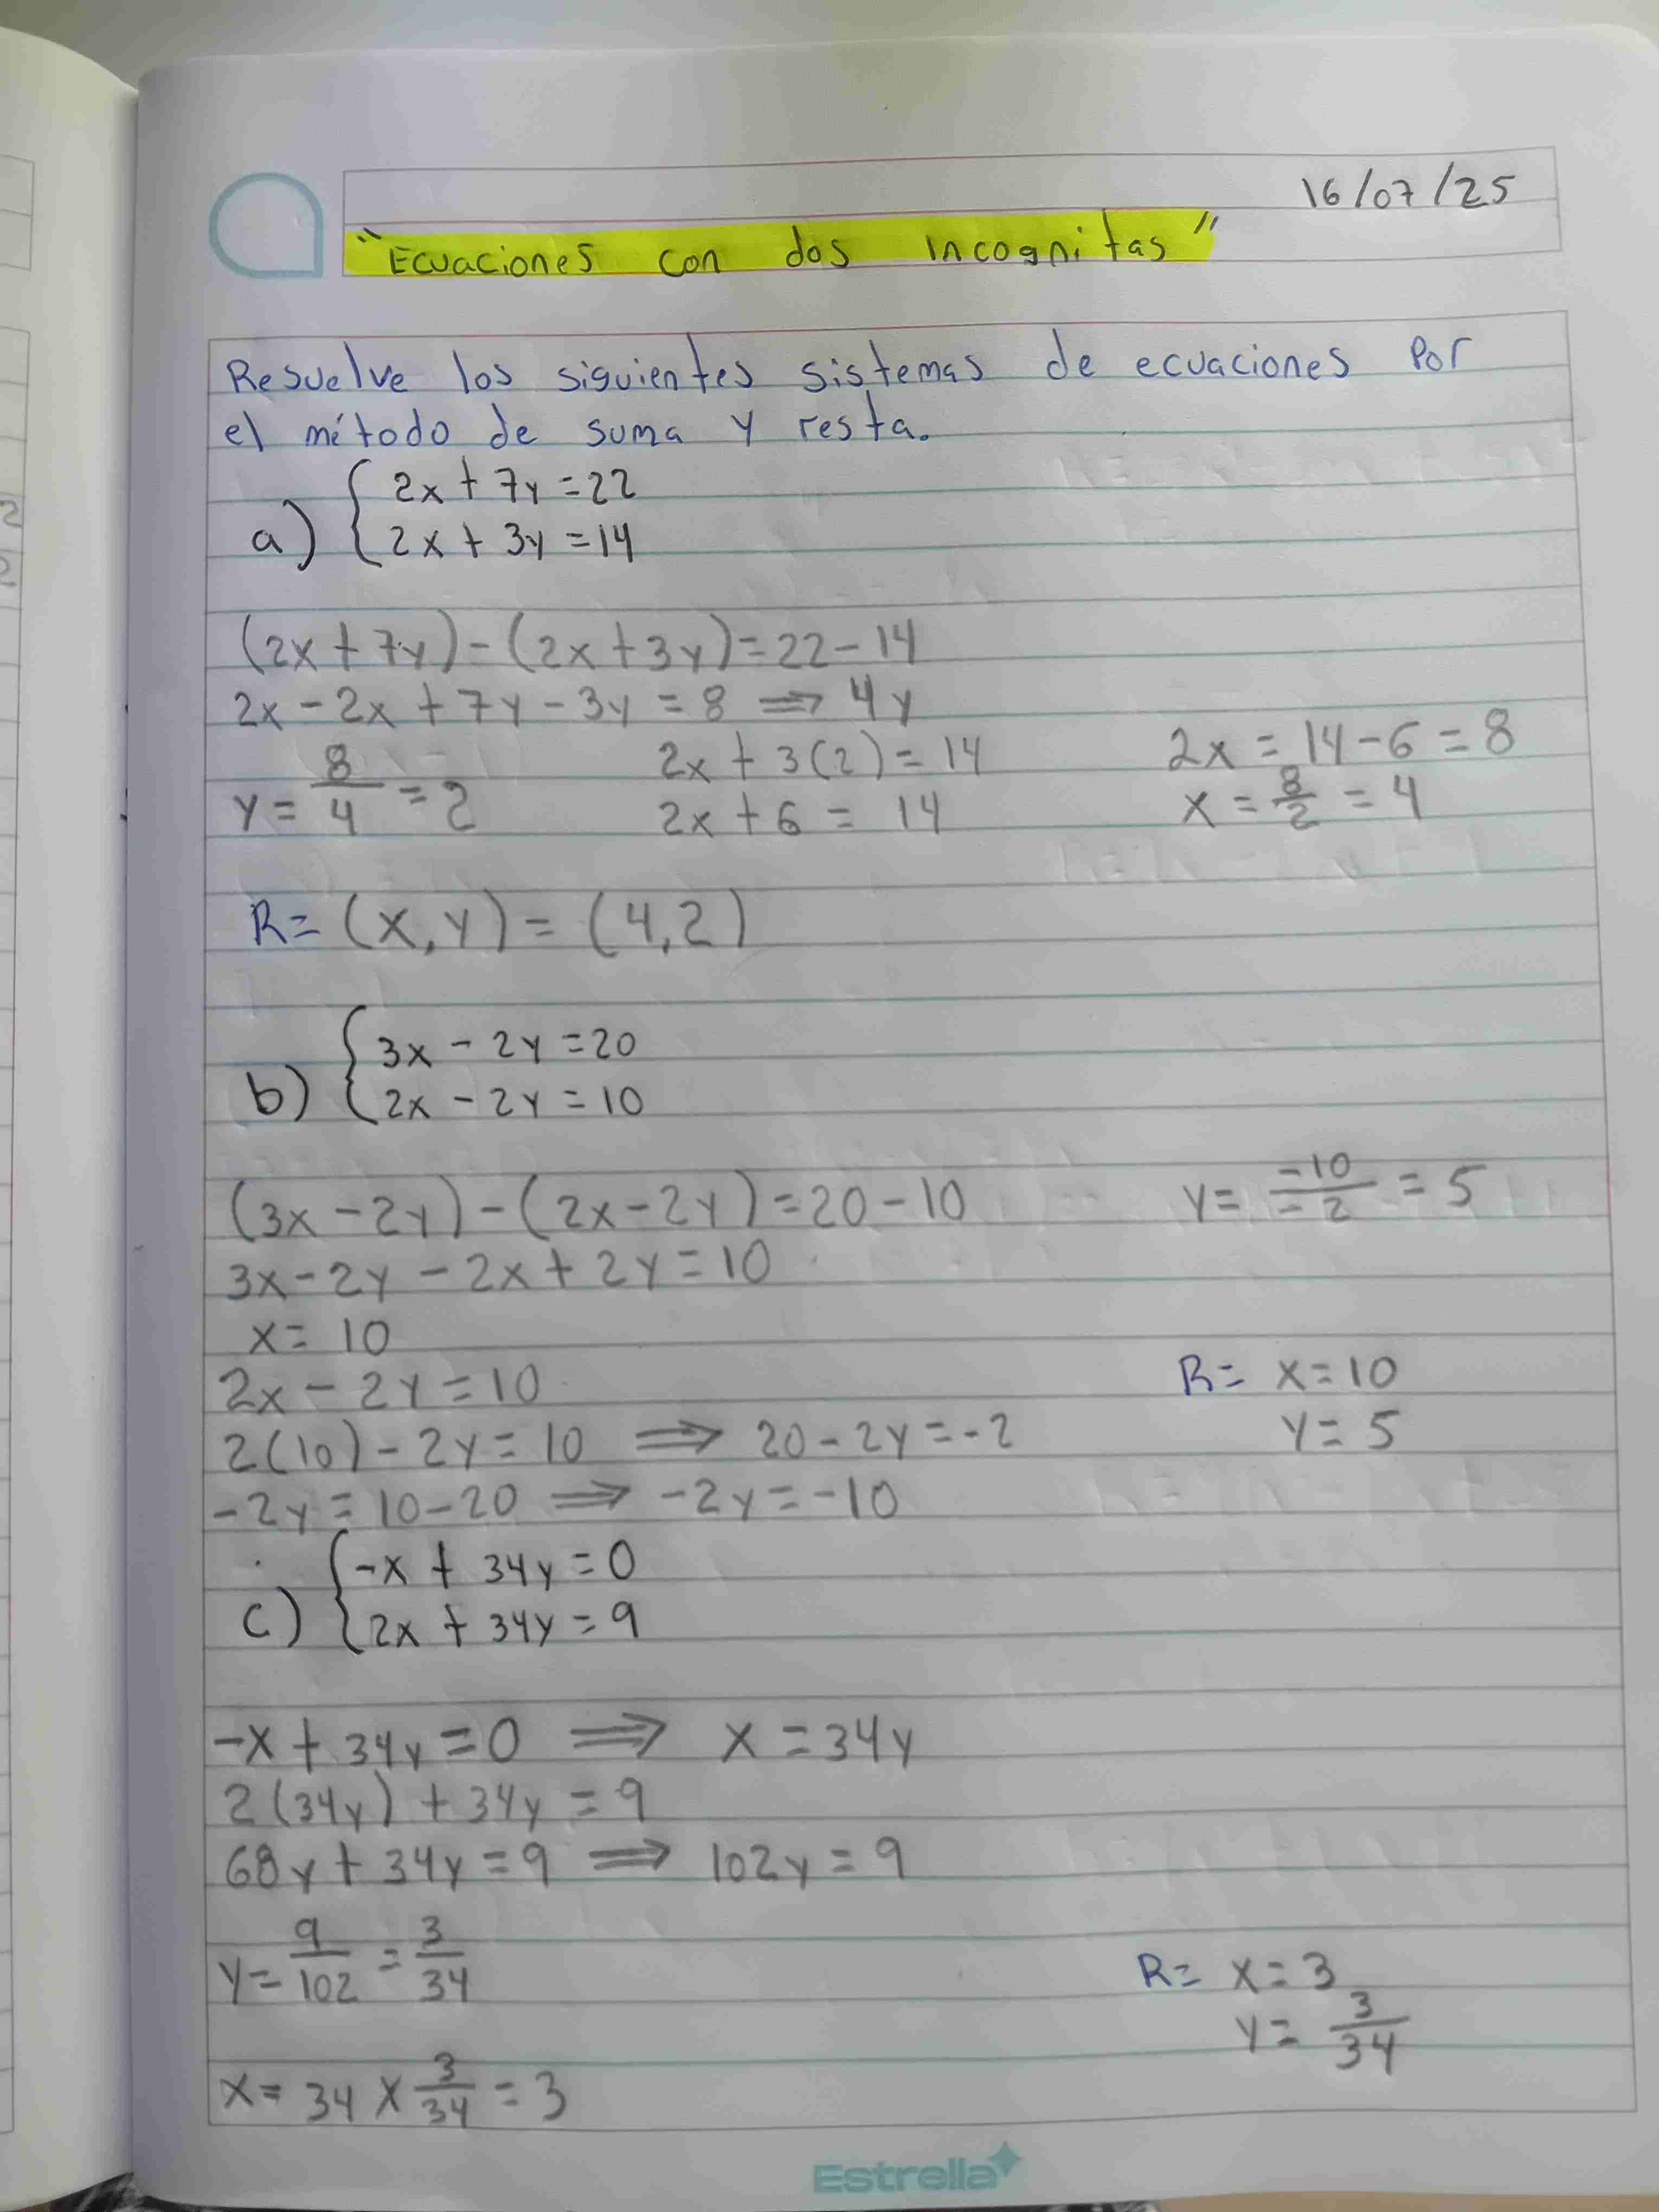 16/07/25
"Ecuaciones con dos incognitas"
Resuelve los siguientes sistemas de ecuaciones por
el método de suma y resta.
a) { 2x + 7y = 22
2x + 3y = 14
(2x + 7y) - (2x + 3y) = 22 - 14
2x - 2x + 7y - 3y = 8 ⇒ 4y
y = 8/4 = 2
2x + 3(2) = 14
2x + 6 = 14
2x = 14 - 6 = 8
x = 8/2 = 4
R = (x, y) = (4, 2)
b) { 3x - 2y = 20
2x - 2y = 10
(3x - 2y) - (2x - 2y) = 20 - 10
3x - 2y - 2x + 2y = 10
x = 10
2x - 2y = 10
2(10) - 2y = 10 ⇒ 20 - 2y = -2
-2y = 10 - 20 ⇒ -2y = -10
y = -10/-2 = 5
R = x = 10
y = 5
c) { -x + 34y = 0
2x + 34y = 9
-x + 34y = 0 ⇒ x = 34y
2(34y) + 34y = 9
68y + 34y = 9 ⇒ 102y = 9
y = 9/102 = 3/34
x = 34 x 3/34 = 3
R = x = 3
y = 3/34
Estrella